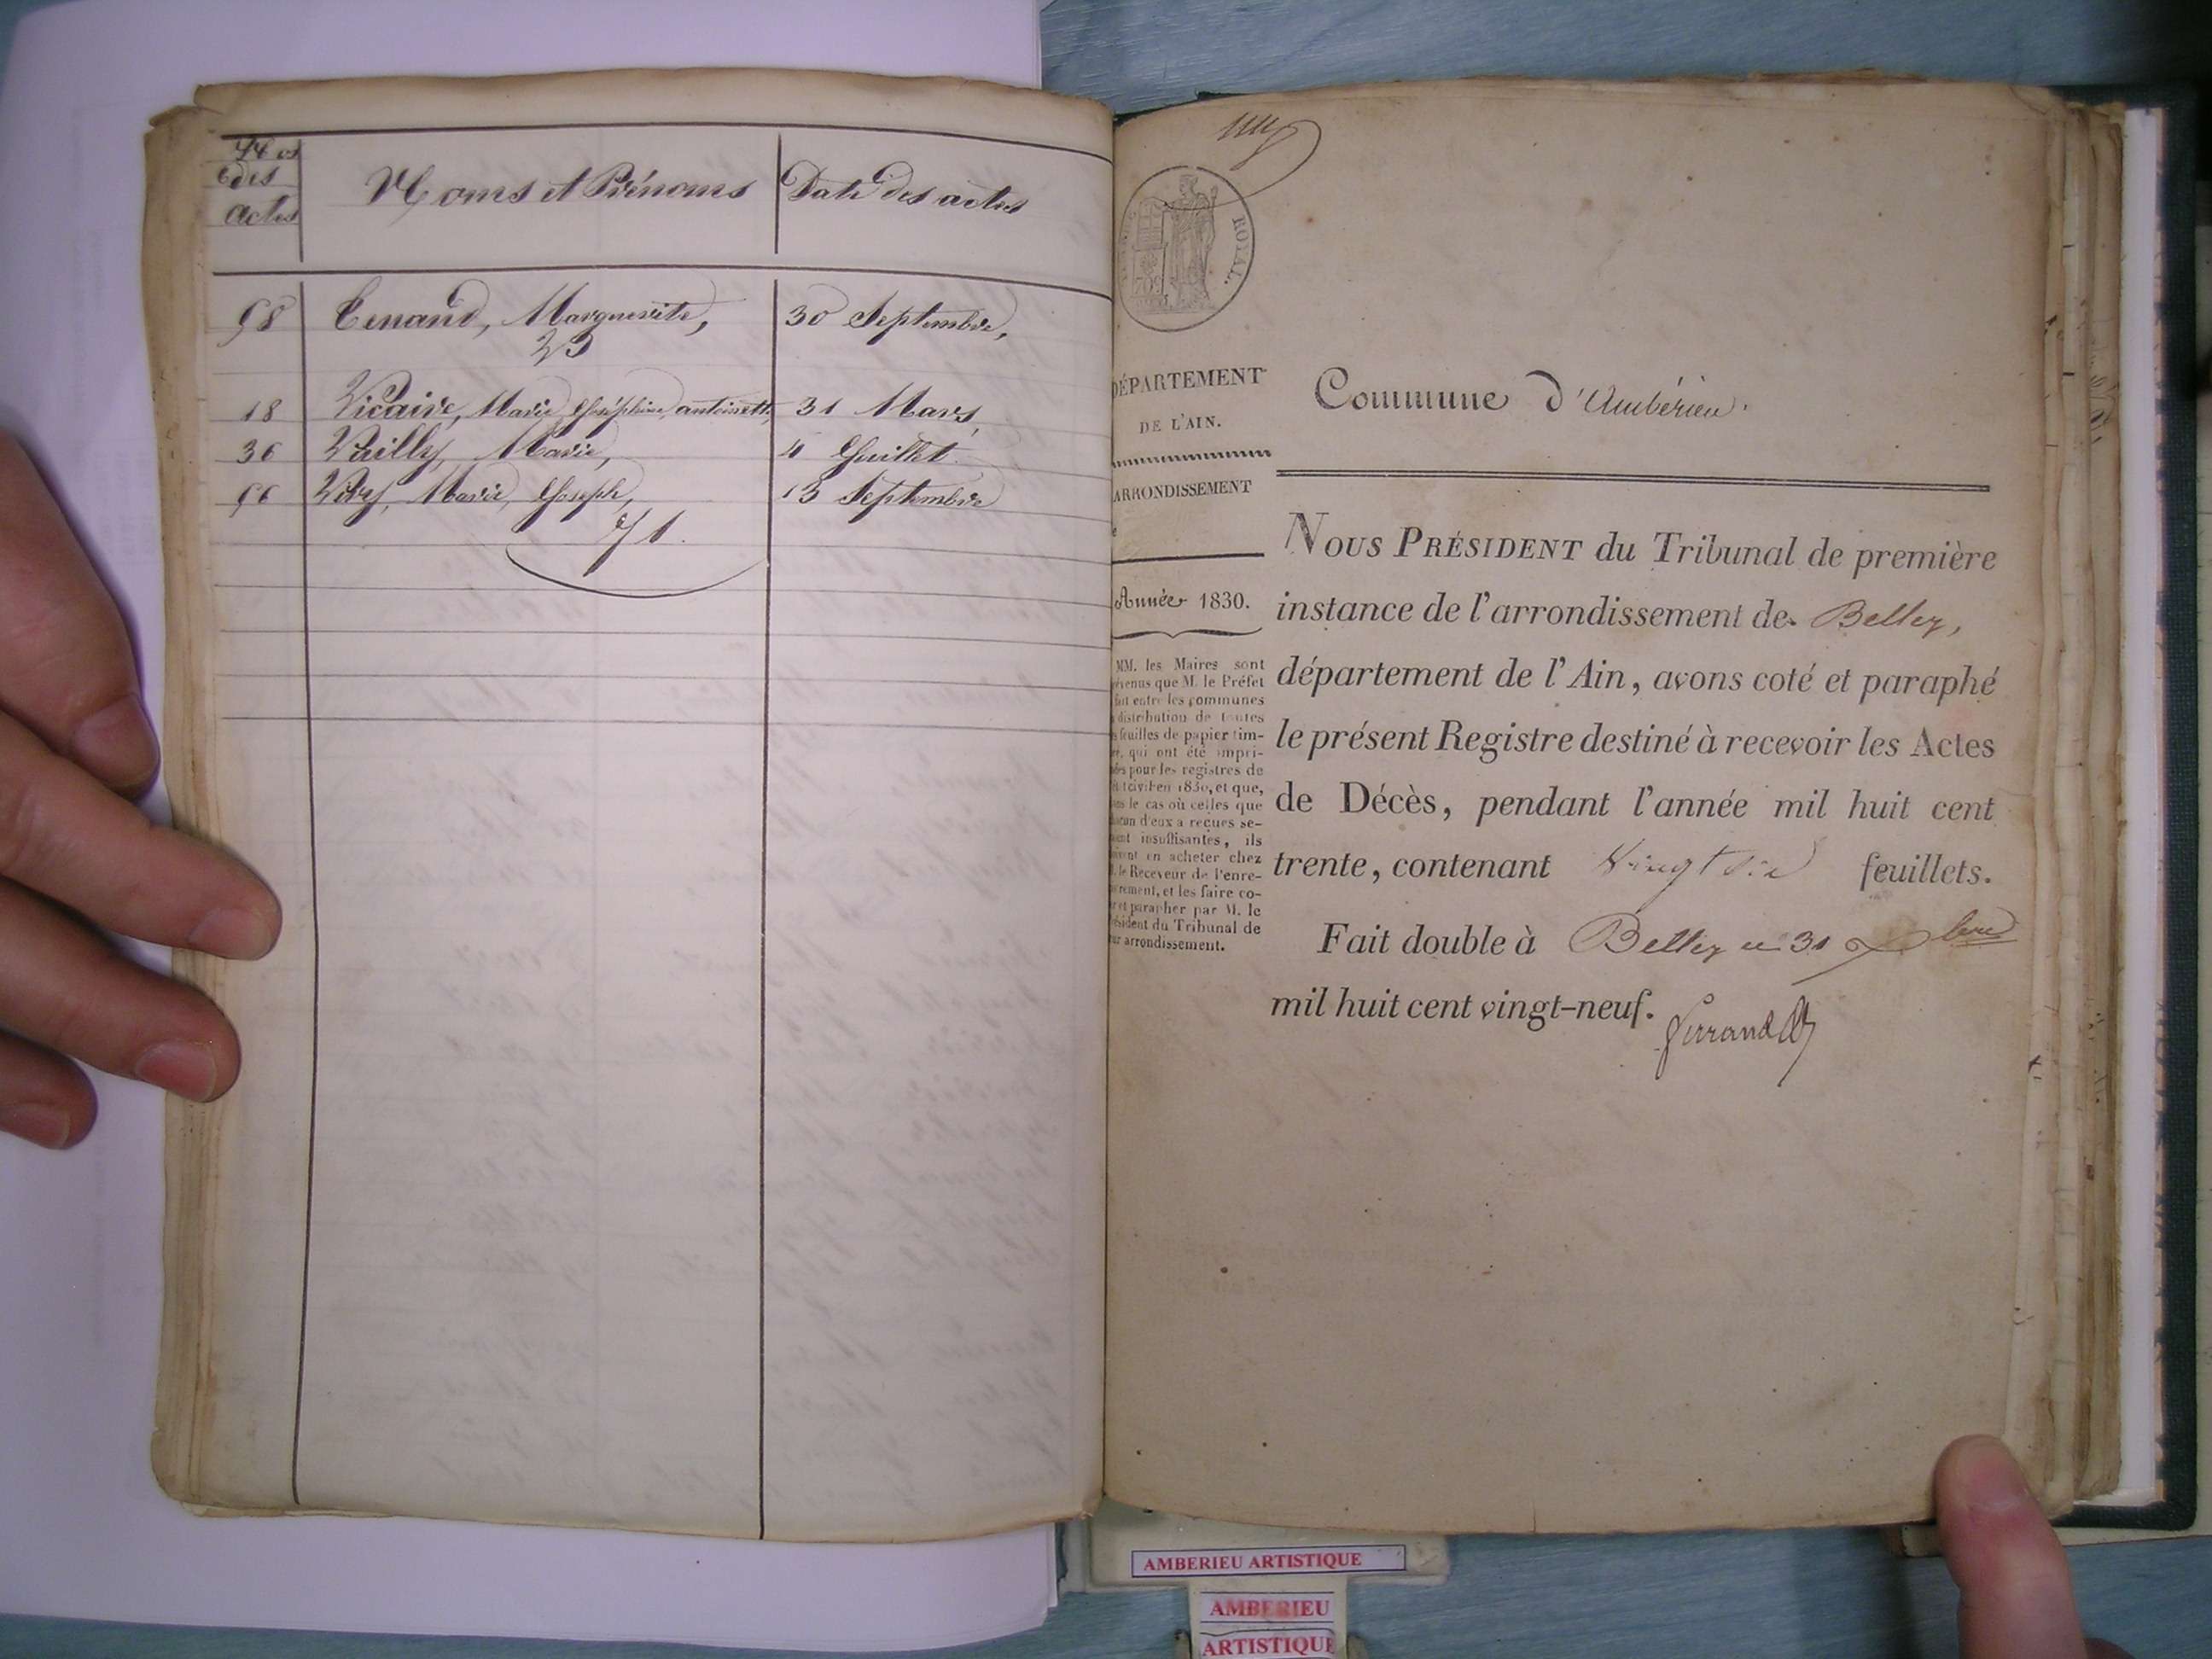 Nos
des
actes
Noms et Prénoms
Date des actes
58 Tenand, Marguerite, 30 Septembre,
23
18 Vicaire, Marie Joséphine antoinette, 31 Mars,
36 Vailly, Marie, 4 Juillet
56 Viry, Marie Joseph, 13 Septembre
71.
ROYAL.
DÉPARTEMENT
DE L'AIN.
ARRONDISSEMENT
Année 1830.
MM. les Maires sont
que M. le Préfet
entre les communes
distribution de toutes
feuilles de papier tim-
qui ont été impri-
pour les registres de
civil en 1830, et que,
le cas où celles que
d'eux a reçues se-
insuffisantes, ils
en acheter chez
le Receveur de l'enre-
et les faire co-
et parapher par M. le
du Tribunal de
arrondissement.
Commune d'Ambérieu.
NOUS PRÉSIDENT du Tribunal de première
instance de l'arrondissement de Belley,
département de l'Ain, avons coté et paraphé
le présent Registre destiné à recevoir les Actes
de Décès, pendant l'année mil huit cent
trente, contenant vingt six feuillets.
Fait double à Belley ce 31 Xbre
mil huit cent vingt-neuf.
AMBERIEU ARTISTIQUE
AMBERIEU
ARTISTIQUE